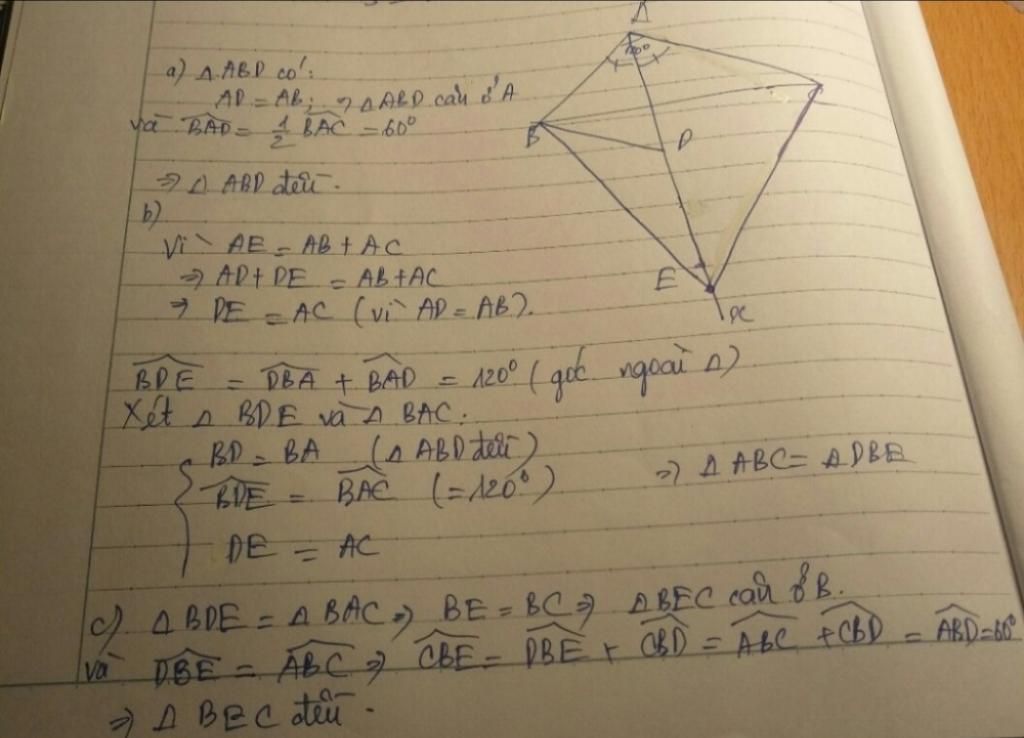 a) Δ ABD có:
AD = AB; ⇒ Δ ABD cân ở A
và \widehat{BAD} = \frac{1}{2} \widehat{BAC} = 60°
⇒ Δ ABD đều.
b)
Vì AE = AB + AC
⇒ AD + DE = AB + AC
⇒ DE = AC (vì AD = AB).
\widehat{BDE} = \widehat{DBA} + \widehat{BAD} = 120° (góc ngoài Δ)
Xét Δ BDE và Δ BAC:
BD = BA (Δ ABD đều)
\widehat{BDE} = \widehat{BAC} (= 120°) ⇒ Δ ABC = Δ DBE
DE = AC
c) Δ BDE = Δ BAC ⇒ BE = BC ⇒ Δ BEC cân ở B.
và \widehat{DBE} = \widehat{ABC} ⇒ \widehat{CBE} = \widehat{DBE} + \widehat{CBD} = \widehat{ABC} + \widehat{CBD} = \widehat{ABD} = 60°
⇒ Δ BEC đều.
A
120°
B
D
E
x